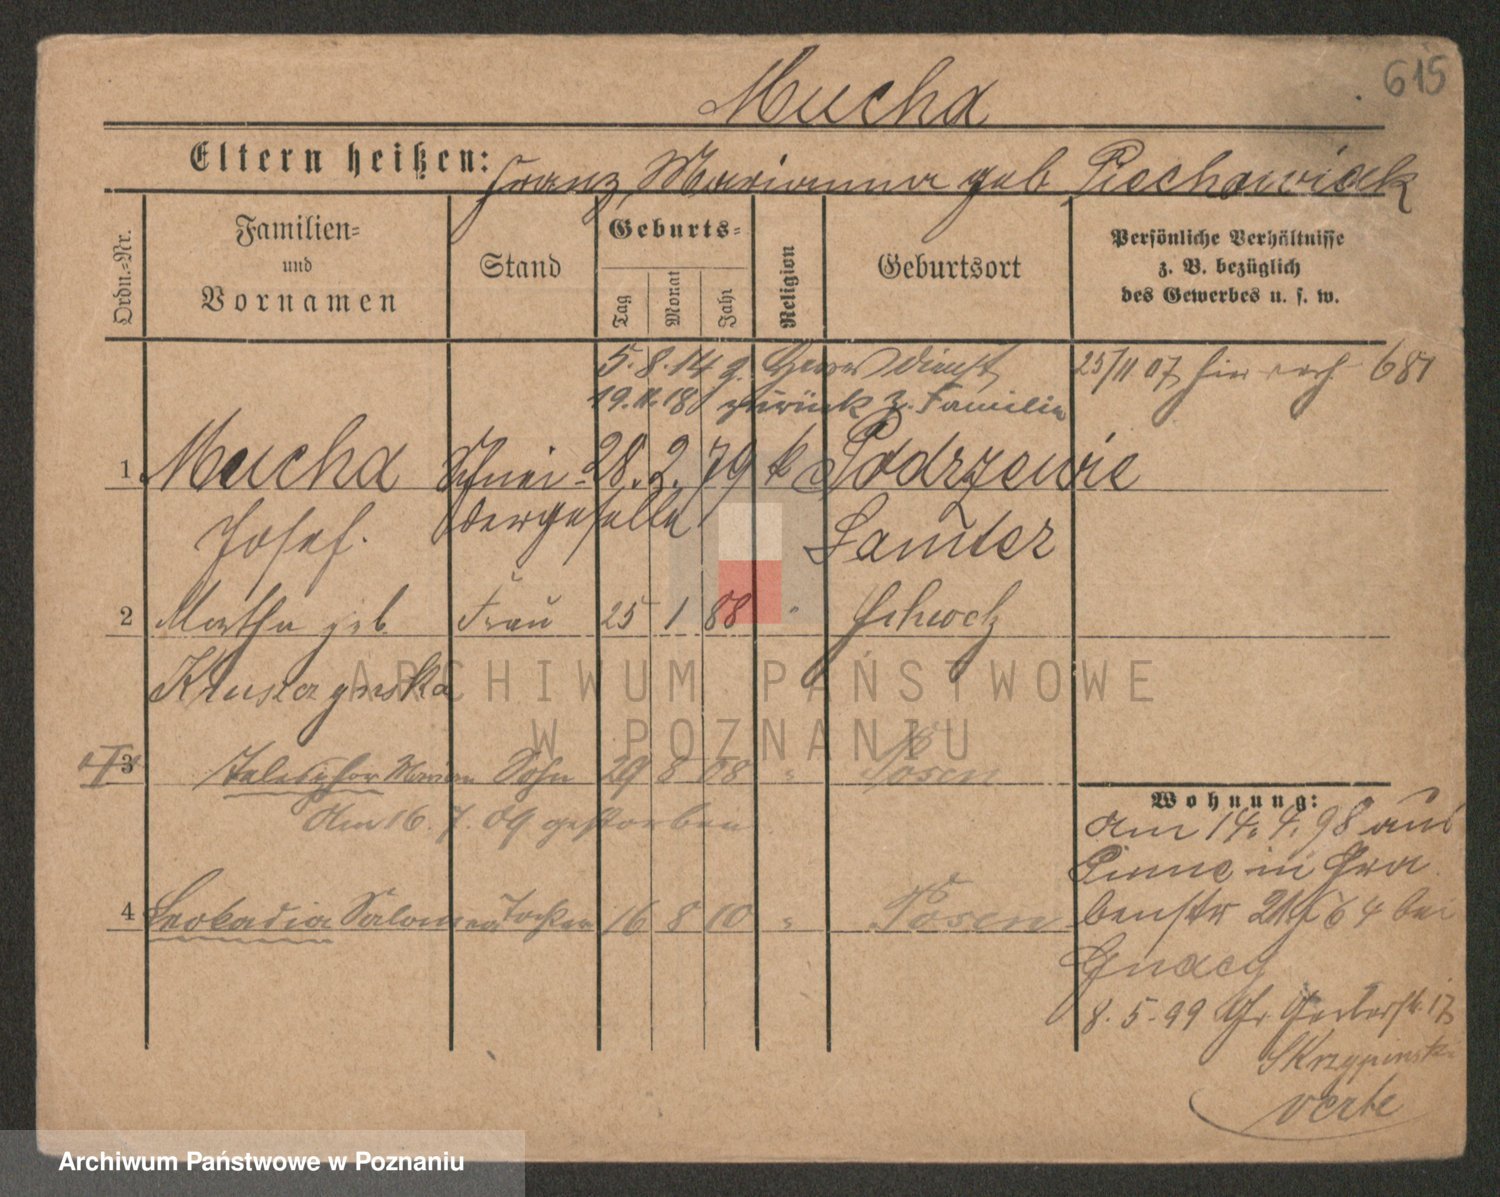 615
Mucha
Eltern heißen: Franz, Marianna geb Piechowiak
Ordn.=Nr.
Familien=
und
Vornamen
Stand
Geburts=
Tag
Monat
Jahr
Religion
Geburtsort
Persönliche Verhältnisse
z. B. bezüglich
des Gewerbes u. s. w.
5.8.14 z. Heeresdienst 25/11 07 hier 681
19.11.18 zurück z. Familie
1 Mucha Schnei- 28. 2. 79 k Podrzewie
Josef. dergeselle Samter
2 Martha geb Frau 25 1 88 "
Kruszczynska
3 Telesphor Marian Sohn 29 8 08 " Posen
Am 16. 7. 09 gestorben
4 Leokadia Salomea Tochter 16 8 10 " Posen
Wohnung:
am 14. 4. 98 aus
Pinne in Gra
benstr 64 bei
Gnacy
8. 5. 99 Gr Gerberstr. 17
Skrzypinski
verte
ARCHIWUM PAŃSTWOWE
W POZNANIU
Archiwum Państwowe w Poznaniu